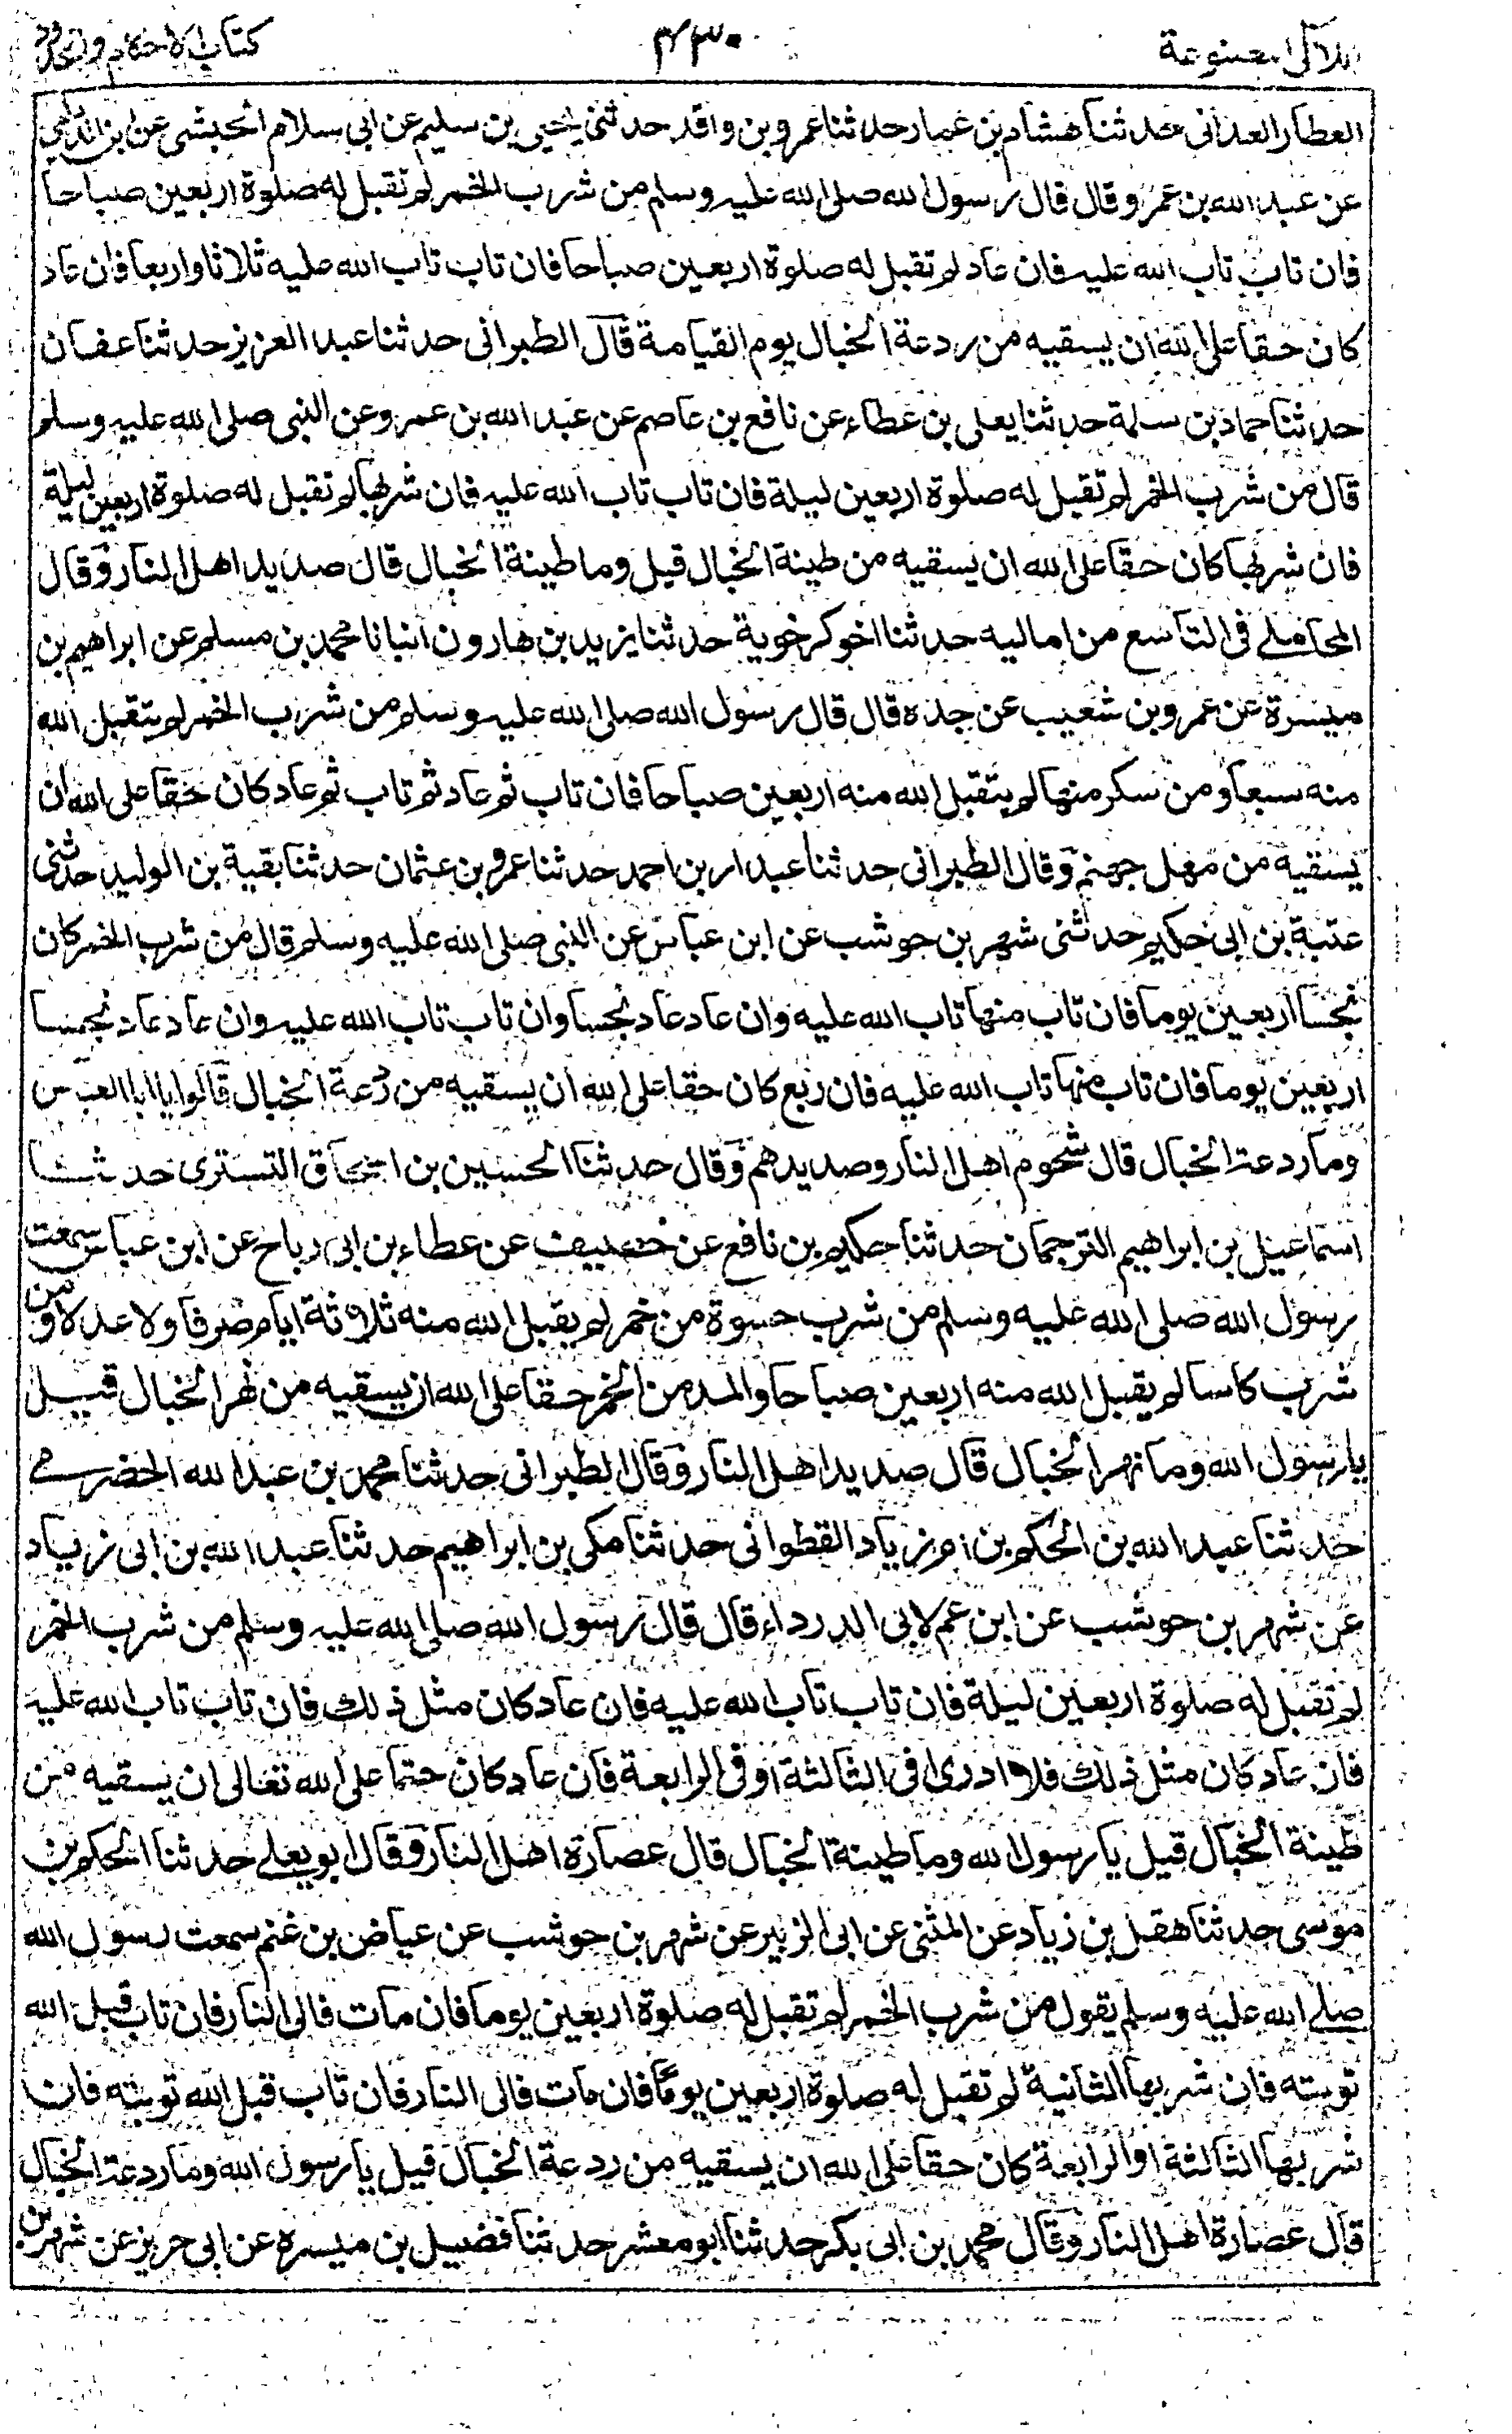 اللآلي المصنوعة
٤٣٠
كتاب الاحكام والحدود
العطار العدانى حدثنا هشام بن عمار حدثنا عمرو بن واقد حدثنى يحيى بن سليم عن ابى سلام الحبشى عن ابن الديلمى
عن عبد الله بن عمرو قال قال رسول الله صلى الله عليه وسلم من شرب الخمر لم تقبل له صلوة اربعين صباحا
فان تاب تاب الله عليه فان عاد لم تقبل له صلوة اربعين صباحا فان تاب تاب الله عليه ثلاثا واربعا فان عاد
كان حقا على الله ان يسقيه من ردعة الخبال يوم القيامة قال الطبرانى حدثنا عبد العزيز حدثنا عفان
حدثنا حماد بن سلمة حدثنا يعلى بن عطاء عن نافع بن عاصم عن عبد الله بن عمرو عن النبى صلى الله عليه وسلم
قال من شرب الخمر لم تقبل له صلوة اربعين ليلة فان تاب تاب الله عليه فان شربها لم تقبل له صلوة اربعين ليلة
فان شربها كان حقا على الله ان يسقيه من طينة الخبال قيل وما طينة الخبال قال صديد اهل النار وقال
المحاملے فى التاسع من اماليه حدثنا اخو كرخوية حدثنا يزيد بن هارون انبانا محمد بن مسلم عن ابراهيم بن
ميسرة عن عمرو بن شعيب عن جده قال قال رسول الله صلى الله عليه وسلم من شرب الخمر لم يتقبل الله
منه سبعا ومن سكر منها لم يتقبل الله منه اربعين صباحا فان تاب ثم عاد ثم تاب ثم عاد كان حقا على الله ان
يسقيه من مهل جهنم وقال الطبرانى حدثنا عبدار بن احمد حدثنا عمرو بن عثمان حدثنا بقية بن الوليد حدثنى
عتبة بن ابى حكيم حدثنى شهر بن حوشب عن ابن عباس عن النبى صلى الله عليه وسلم قال من شرب الخمر كان
نجسا اربعين يوما فان تاب منها تاب الله عليه وان عاد عاد نجسا وان تاب تاب الله عليه وان عاد عاد نجسا
اربعين يوما فان تاب منها تاب الله عليه فان ربع كان حقا على الله ان يسقيه من ردعة الخبال قالوا يا ابا العباس
وما ردعة الخبال قال شحوم اهل النار وصديدهم وقال حدثنا الحسين بن اسحاق التسترى حدثنا
اسماعيل بن ابراهيم الترجمان حدثنا حكيم بن نافع عن خصيف عن عطاء بن ابى رباح عن ابن عباس سمعت
رسول الله صلى الله عليه وسلم من شرب حسوة من خمر لم يقبل الله منه ثلاثة ايام صرفا ولا عدلا ومن
شرب كاسا لم يقبل الله منه اربعين صباحا والمدمن الخمر حقا على الله ان يسقيه من نهر الخبال قيل
يا رسول الله وما نهر الخبال قال صديد اهل النار وقال الطبرانى حدثنا محمد بن عبد الله الحضرمے
حدثنا عبد الله بن الحكم بن ام زياد القطوانى حدثنا مكى بن ابراهيم حدثنا عبد الله بن ابى زياد
عن شهر بن حوشب عن ابن عم لابى الدرداء قال قال رسول الله صلى الله عليه وسلم من شرب الخمر
لم تقبل له صلوة اربعين ليلة فان تاب تاب الله عليه فان عاد كان مثل ذلك فان تاب تاب الله عليه
فان عاد كان مثل ذلك فلا ادرى فى الثالثة او فى الرابعة فان عاد كان حتما على الله تعالى ان يسقيه من
طينة الخبال قيل يا رسول الله وما طينة الخبال قال عصارة اهل النار وقال ابو يعلے حدثنا الحكم بن
موسى حدثنا هقل بن زياد عن المثنى عن ابى الزبير عن شهر بن حوشب عن عياض بن غنم سمعت رسول الله
صلے الله عليه وسلم يقول من شرب الخمر لم تقبل له صلوة اربعين يوما فان مات فالى النار فان تاب قبل الله
توبته فان شربها الثانية لم تقبل له صلوة اربعين يوما فان مات فالى النار فان تاب قبل الله توبته فان
شربها الثالثة او الرابعة كان حقا على الله ان يسقيه من ردعة الخبال قيل يا رسول الله وما ردعة الخبال
قال عصارة اهل النار وقال محمد بن ابى بكر حدثنا ابو معشر حدثنا فضيل بن ميسره عن ابى حريز عن شهر بن